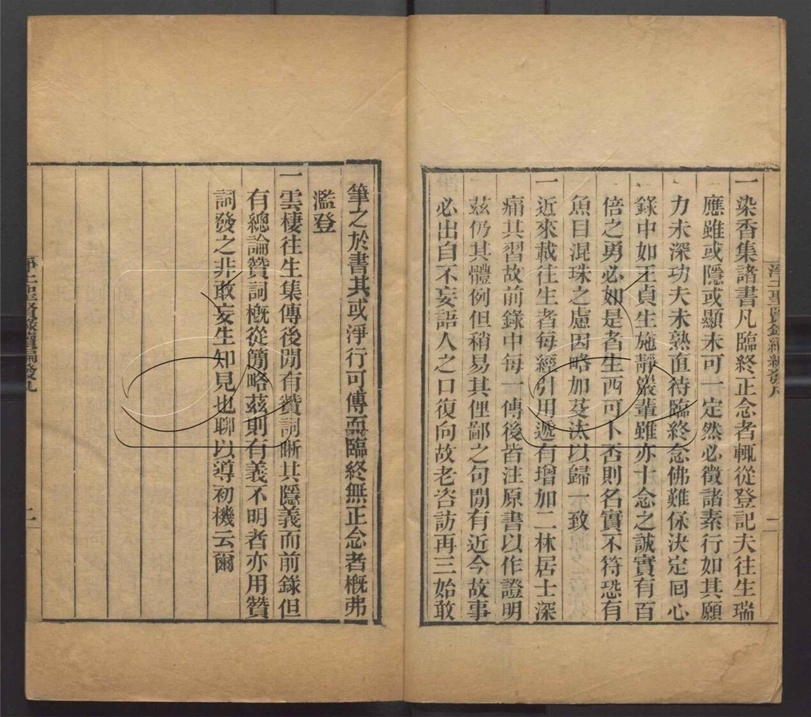 一染香集諸書凡臨終正念者輒從登記夫往生瑞
應雖或隱或顯未可一定然必徵諸素行如其願
力未深功夫未熟直待臨終念佛難保決定囘心
錄中如王貞生施靜巖輩雖亦十念之誠實有百
倍之勇必如是者生西可卜否則名實不符恐有
魚目混珠之慮因略加芟汰以歸一致
一近來載往生者每經引用遞有增加二林居士深
痛其習故前錄中每一傳後皆注原書以作證明
茲仍其體例但稍易其俚鄙之句閒有近今故事
必出自不妄語人之口復向故老咨訪再三始敢
筆之於書其或淨行可傳而臨終無正念者槪弗
濫登
一雲棲往生集傳後閒有贊詞晰其隱義而前錄但
有總論贊詞槪從簡略茲則有義不明者亦用贊
詞發之非敢妄生知見也聊以導初機云爾